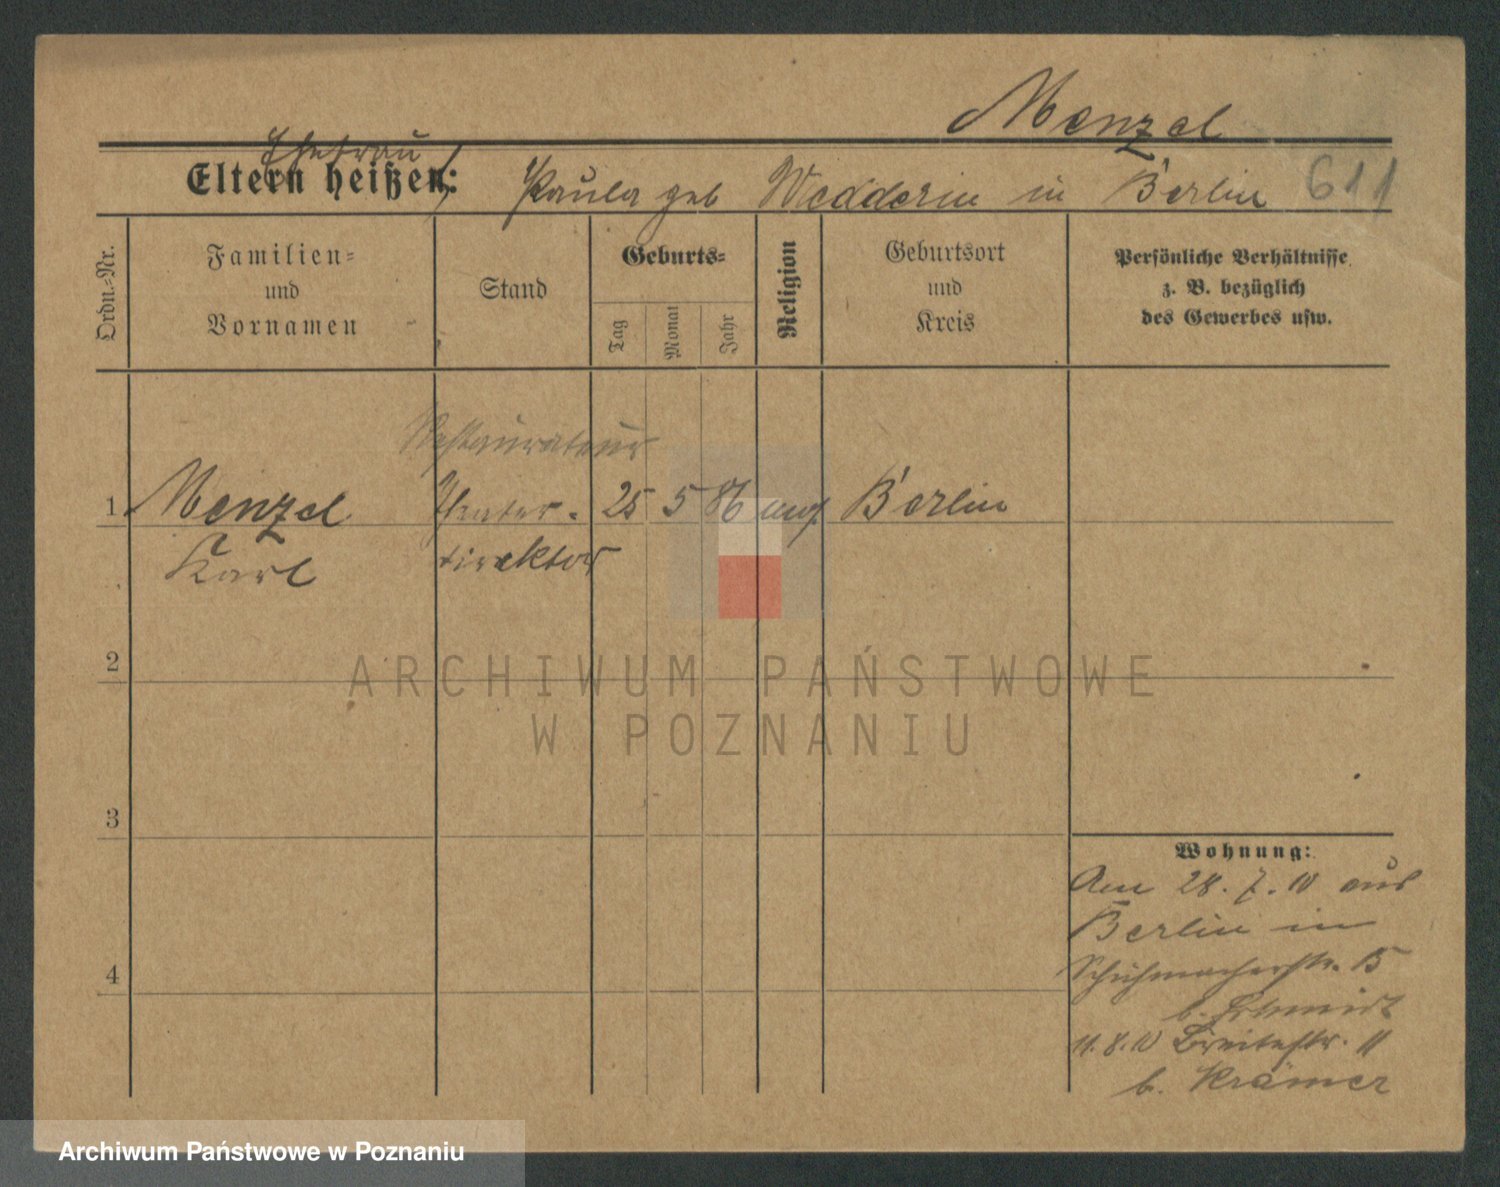 Menzel
Ehefrau
Eltern heißen: Paula geb Wedderin in Berlin 611
Ordn.-Nr.
Familien-
und
Vornamen
Stand
Geburts-
Tag
Monat
Jahr
Religion
Geburtsort
und
Kreis
Persönliche Verhältnisse
z. B. bezüglich
des Gewerbes usw.
Restaurateur
1 Menzel Theater- 25 5 86 Berlin
Karl direktor
2
ARCHIWUM PAŃSTWOWE
W POZNANIU
3
Wohnung:
Am 28.7.10 aus
Berlin in
Schuhmacherstr. 15
b. Schmidt
11.8.10 Breitestr. 11
b. Krämer
4
Archiwum Państwowe w Poznaniu